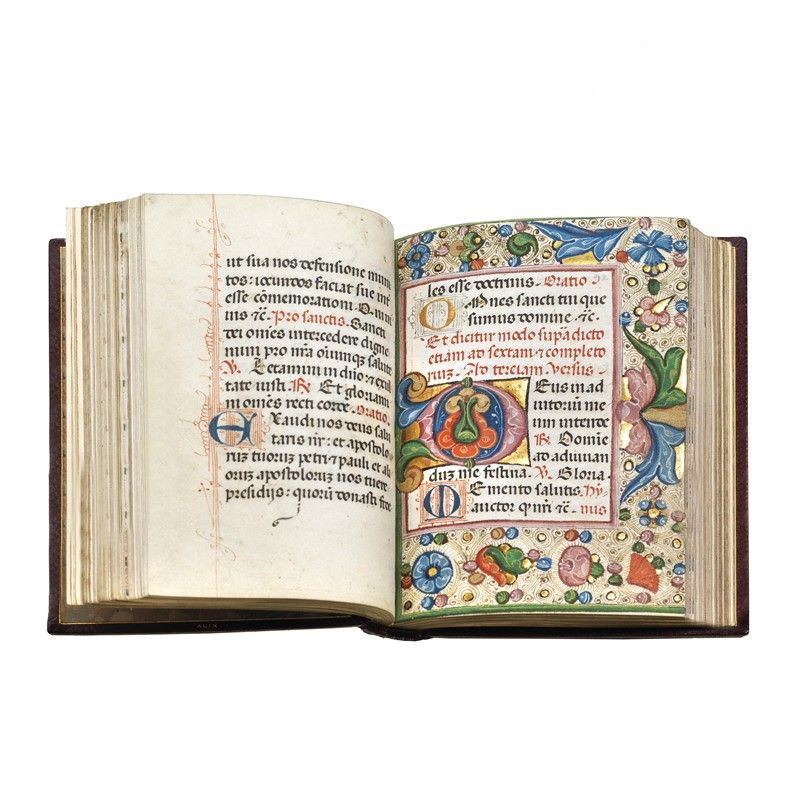 ut sua nos defensione muni
tos: iocundos faciat sue int
esse cōmemorationi. O mnui
ius ⁊č. Pro sanctis. Sancti
dei om̄es intercedere digne
mini pro nr̄a oīumq̄ salute
℣. Letamini in dn̄o ⁊ exul
tate iusti. ℟. Et gloriami
ni om̄es recti corde. Oratio.
EXaudi nos deus salu
taris nr̄: et apostolo
rum tuorum petri ⁊ pauli et ali
orum apostolorum nos tuere
presidijs: quorū donasti fide
les esse doctrinis. Oratio.
Omnes sancti tui que
sumus domine. ⁊č.
Et dicitur modo sup̄adicto
etiam ad sextam ⁊ completo
rium. Ad terciam versus.
DEus in ad
iutoriū me
um intende
℟. Domīe
ad adiuuan
dum me festina. ℣. Gloria
Memento salutis. Hy
auctor q̄ nr̄i ⁊č. mnus
ALIX